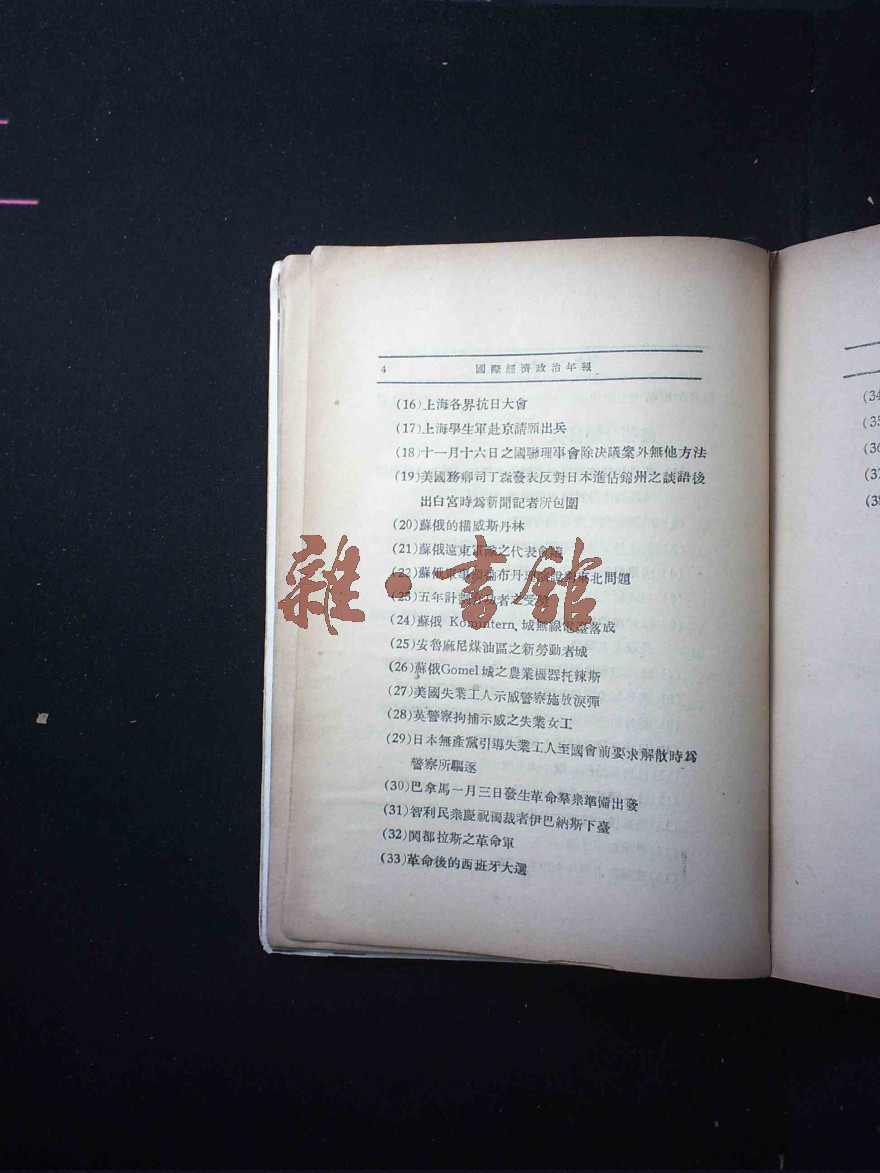 4 國際經濟政治年報
(16)上海各界抗日大會
(17)上海學生軍赴京請願出兵
(18)十一月十六日之國聯理事會除決議案外無他方法
(19)美國務卿司丁森發表反對日本進佔錦州之談話後
出白宮時爲新聞記者所包圍
(20)蘇俄的權威斯丹林
(21)蘇俄遠東軍隊之代表會議
(22)蘇俄 布丹 東北問題
(23)五年計劃 者之受
(24)蘇俄 Komintern 城無線電臺落成
(25)安魯麻尼煤油區之新勞動者城
(26)蘇俄Gomel城之農業機器托辣斯
(27)美國失業工人示威警察施放淚彈
(28)英警察拘捕示威之失業女工
(29)日本無產黨引導失業工人至國會前要求解散時爲
警察所驅逐
(30)巴拿馬一月三日發生革命羣衆準備出發
(31)智利民衆慶祝獨裁者伊巴納斯下臺
(32)閧都拉斯之革命軍
(33)革命後的西班牙大選
雜·書館
(34
(35
(36
(37
(38